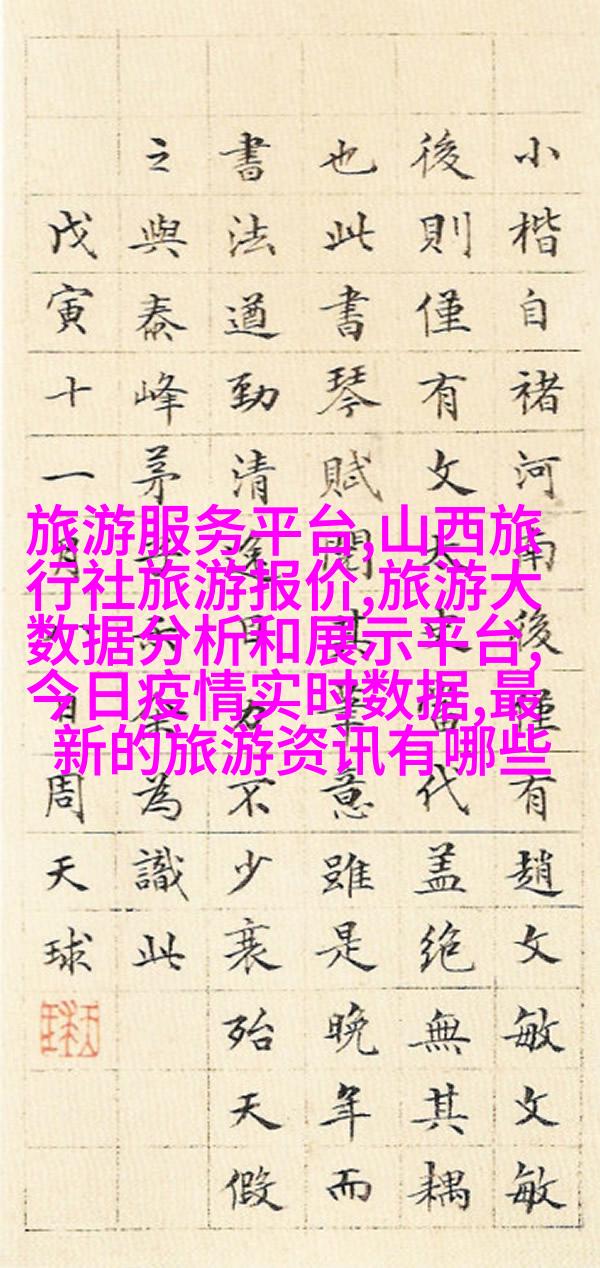 小楷自褚河南後僅有趙文敏文敏
後則僅有文太史當代盖絶無其耦
也此書琴賦其筆意雖是晚年而
書法遒勁清逸目力不少衰殆天假
之與泰峰茅子余為識此
戊寅十一月日周天球
旅游服务平台,山西旅
行社旅游报价,旅游大
数据分析和展示平台,
今日疫情实时数据,最
新的旅游资讯有哪些